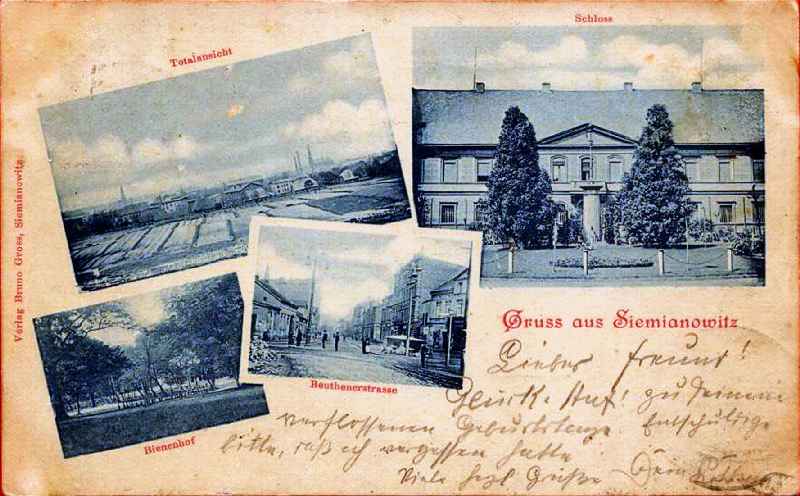 Schloss
Totalansicht
Verlag Bruno Gross, Siemianowitz.
Gruss aus Siemianowitz
Beuthenerstrasse
Bienenhof
Lieber Freund!
Glück Auf! zu Deinem
verflossenen Geburtstage. Entschuldige
bitte, daß ich vergessen hatte.
Viele herzl. Grüße Dein